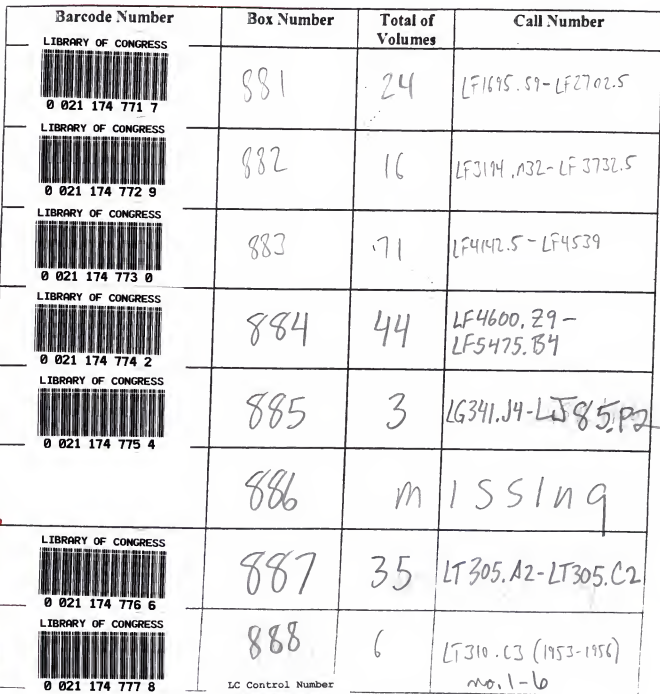 Barcode Number Box Number Total of Volumes Call Number
LIBRARY OF CONGRESS
0 021 174 771 7
881 24 LF1695.S9-LF2702.5
LIBRARY OF CONGRESS
0 021 174 772 9
882 16 LF3194.A32-LF3732.5
LIBRARY OF CONGRESS
0 021 174 773 0
883 71 LF4142.5-LF4539
LIBRARY OF CONGRESS
0 021 174 774 2
884 44 LF4600.Z9-
LF5475.B4
LIBRARY OF CONGRESS
0 021 174 775 4
885 3 LG341.J4-LJ85.P2
886 missing
LIBRARY OF CONGRESS
0 021 174 776 6
887 35 LT305.A2-LT305.C2
LIBRARY OF CONGRESS
0 021 174 777 8
888 6 LT310.C3 (1953-1956)
no. 1-6
LC Control Number